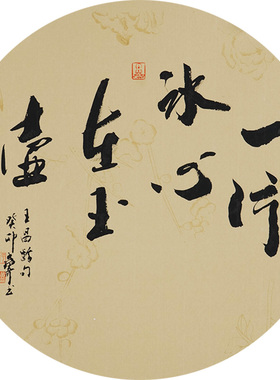 一片
冰心
在玉
壶
王昌龄句
癸卯